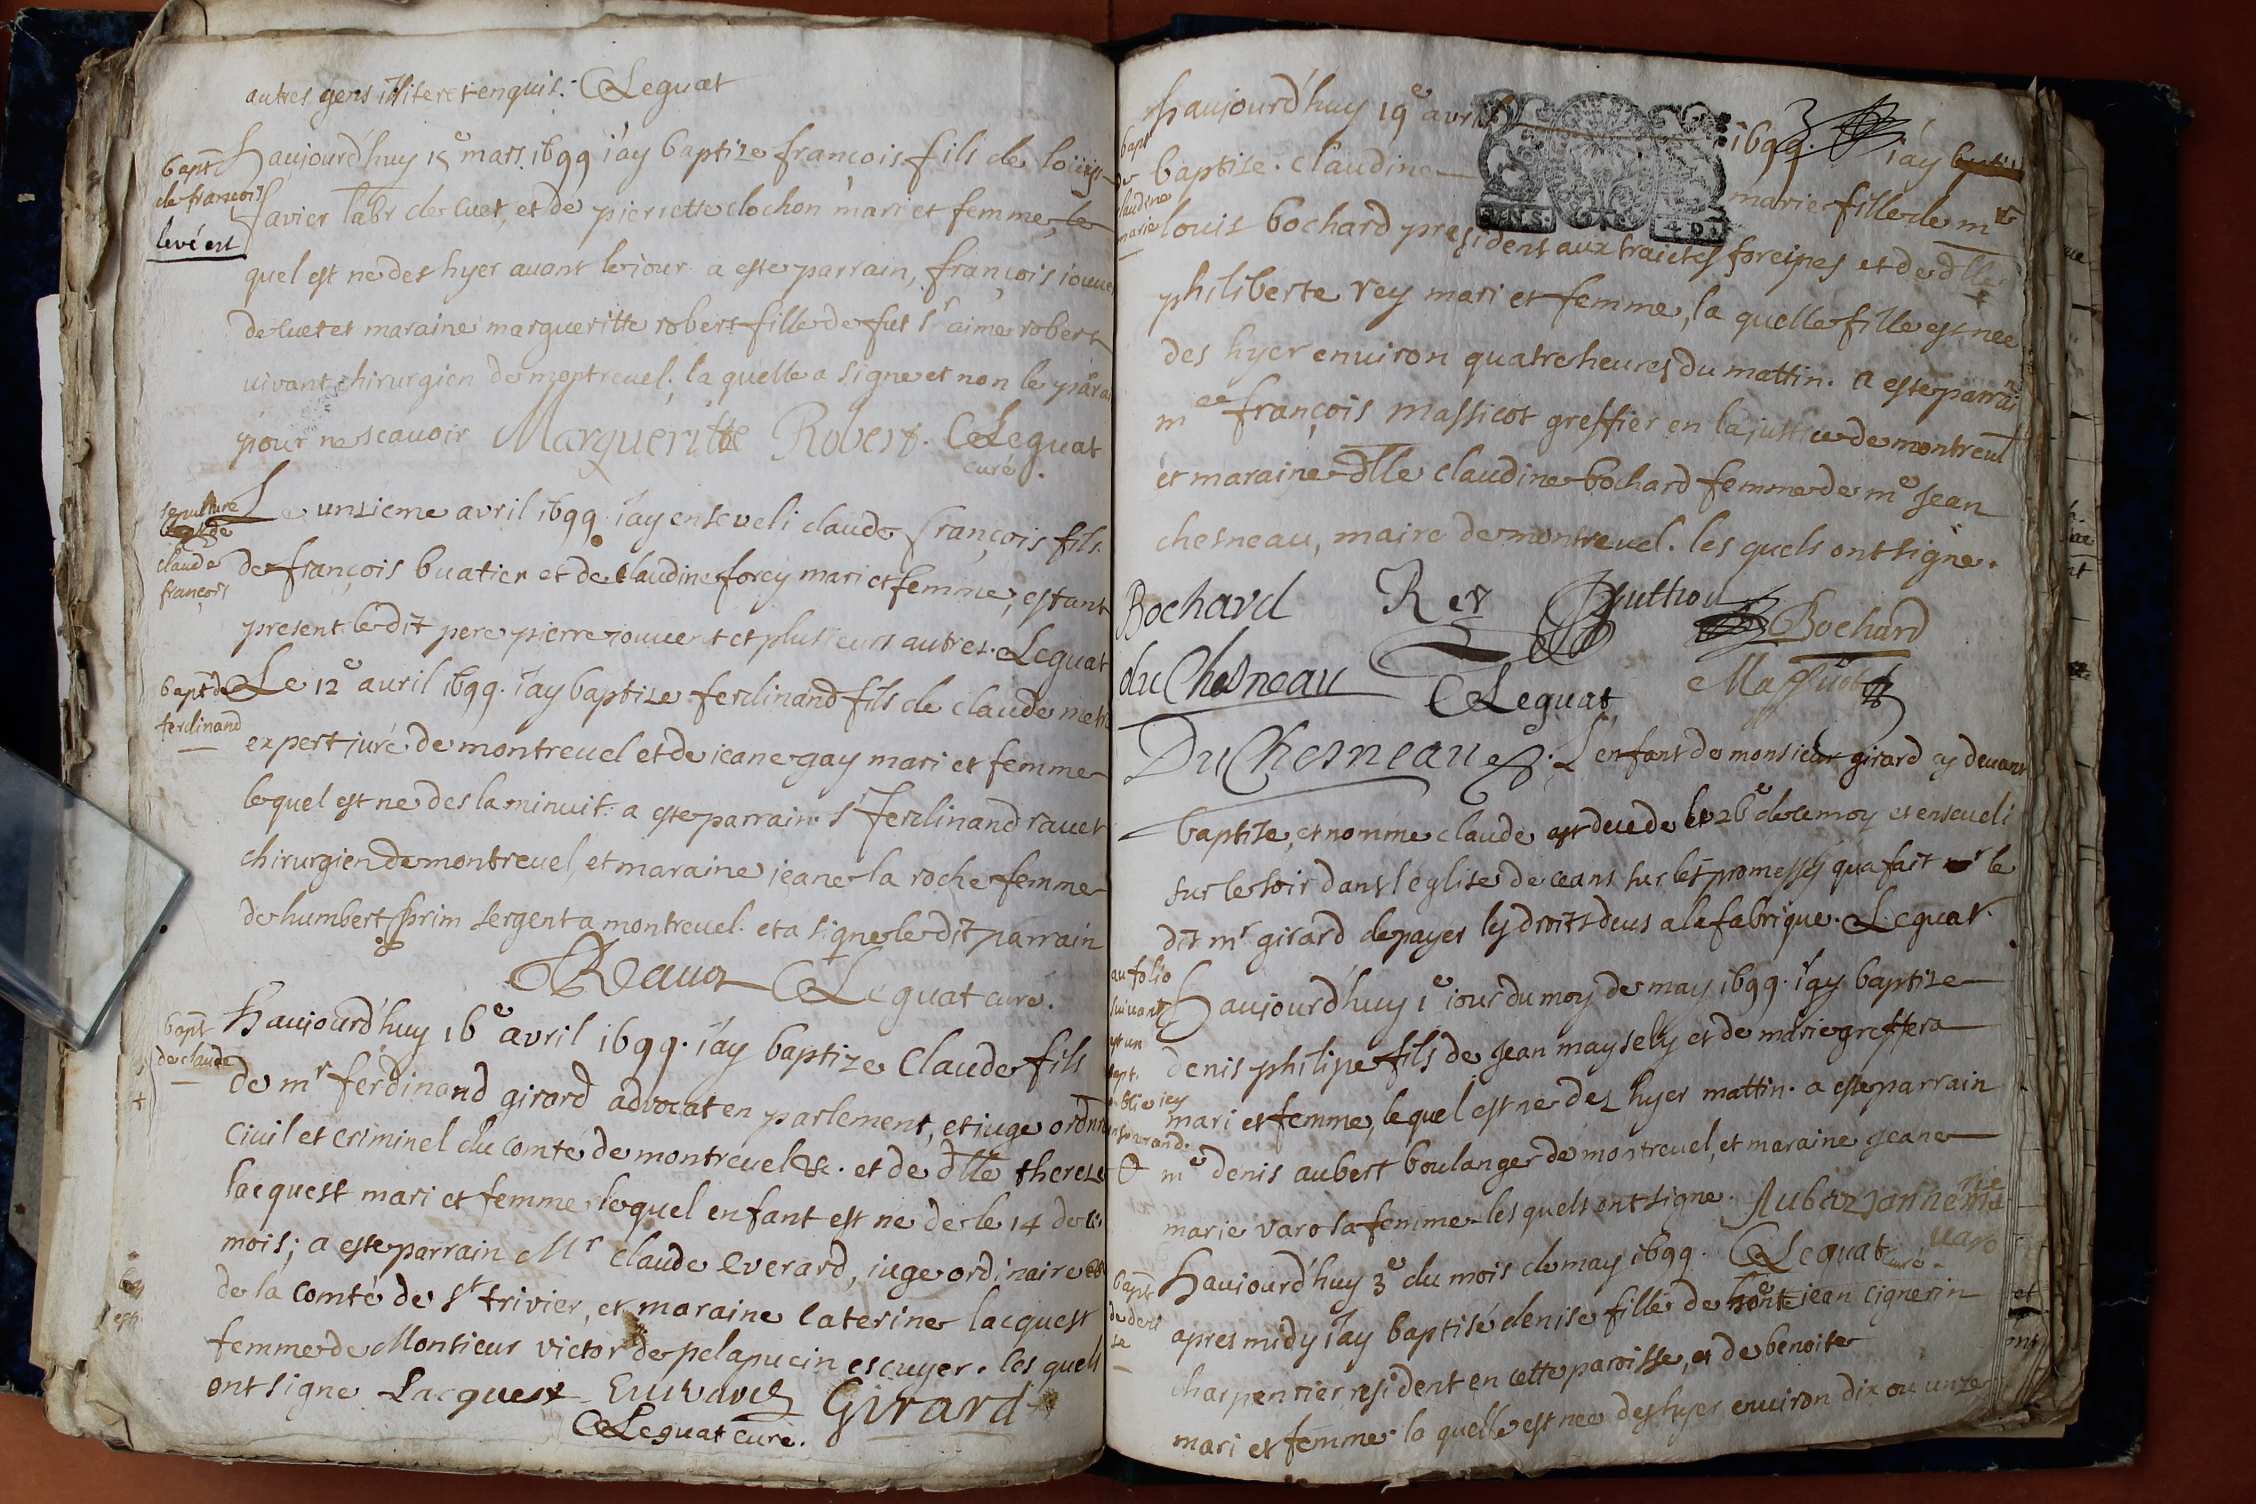 autres gens illiteres enquis. CLeguat
bapt
de françois
levé est
haujourd'huy 15e mars 1699 i'ay baptize françois fils de louys
favier labr de cuet, et de pierrette clochon mari et femme, le
quel est ne des hyer avant le jour a este parrain, françois iouve
de cuet et maraine margueritte robert fille de fut Sr aime robert
vivant chirurgien de montrevel, la quelle a signe et non le para
pour ne scavoir Margueritte Robert. CLeguat
curé.
sepulture
de
claude
françois
Le unzieme avril 1699 i'ay enseveli claude françois fils
de françois buatier et de claudine forey mari et femme, estant
present le dit pere pierre iouvent et plusieurs autres. CLeguat
bapt de
ferdinand
Le 12e avril 1699. i'ay baptize ferdinand fils de claude
expert juré de montrevel et de jeane gay mari et femme
lequel est ne des la minuit. a este parrain Sr ferdinand ravet
chirurgien de montrevel, et maraine jeane la roche femme
de humbert prim sergent a montrevel. et a signe le dit parrain
Ravet CLeguat curé.
bapt
de claude
haujourd'huy 16e avril 1699. i'ay baptize Claude fils
de mr ferdinand girard advocat en parlement, et iuge ordre
civil et criminel du comté de montrevel &c. et de dlle therese
lacquest mari et femme lequel enfant est ne des le 14 de
mois; a este parrain Mr claude Everard, iuge ordinaire
de la comté de St trivier, et maraine caterine lacquest
femme de Monsieur victor de pelapucin escuyer. les quels
ont signe Lacquest Euvrard Girard
CLeguat curé.
bapt
de
claudine
marie
haujourd'huy 19e avril 1699. i'ay
baptize. claudine marie fille de me
louis bochard president aux traictes foreines et de dlle
philiberte rey mari et femme, la quelle fille est nee
des hyer environ quatre heures du mattin. a este parrain
me françois massicot greffier en la justice de montrevel
et maraine dlle claudine bochard femme de me jean
chesneau, maire de montrevel. les quels ont signe.
Bochard Rey Bochard
du Chesneau CLeguat
Du Chesneau L'enfant de monsieur girard cy devant
baptize, et nomme claude est decede le 26e de ce moy et enseveli
sur le soir dans l'eglise de ceans sur les promesses qu'a fait le
dit mr girard de payer les droits deus a la fabrique. Leguat.
au folio
suivant
est un
bapt.
oublie icy
haujourd'huy 1e iour du moy de may 1699. i'ay baptize
denis philipe fils de jean maysely et de marie greffera
mari et femme, lequel est ne des hyer mattin. a este parrain
me denis aubert boulanger de montrevel, et maraine jeane
marie varo sa femme les quels ont signe. Auber janne marie
varo
CLeguat curé.
bapt
de deni
se
haujourd'huy 3e du mois de may 1699.
apres midy i'ay baptisé denise fille de jean cignerin
charpentier resident en cette paroisse, et de benoite
mari et femme. la quelle est nee des hyer environ dix ou unze